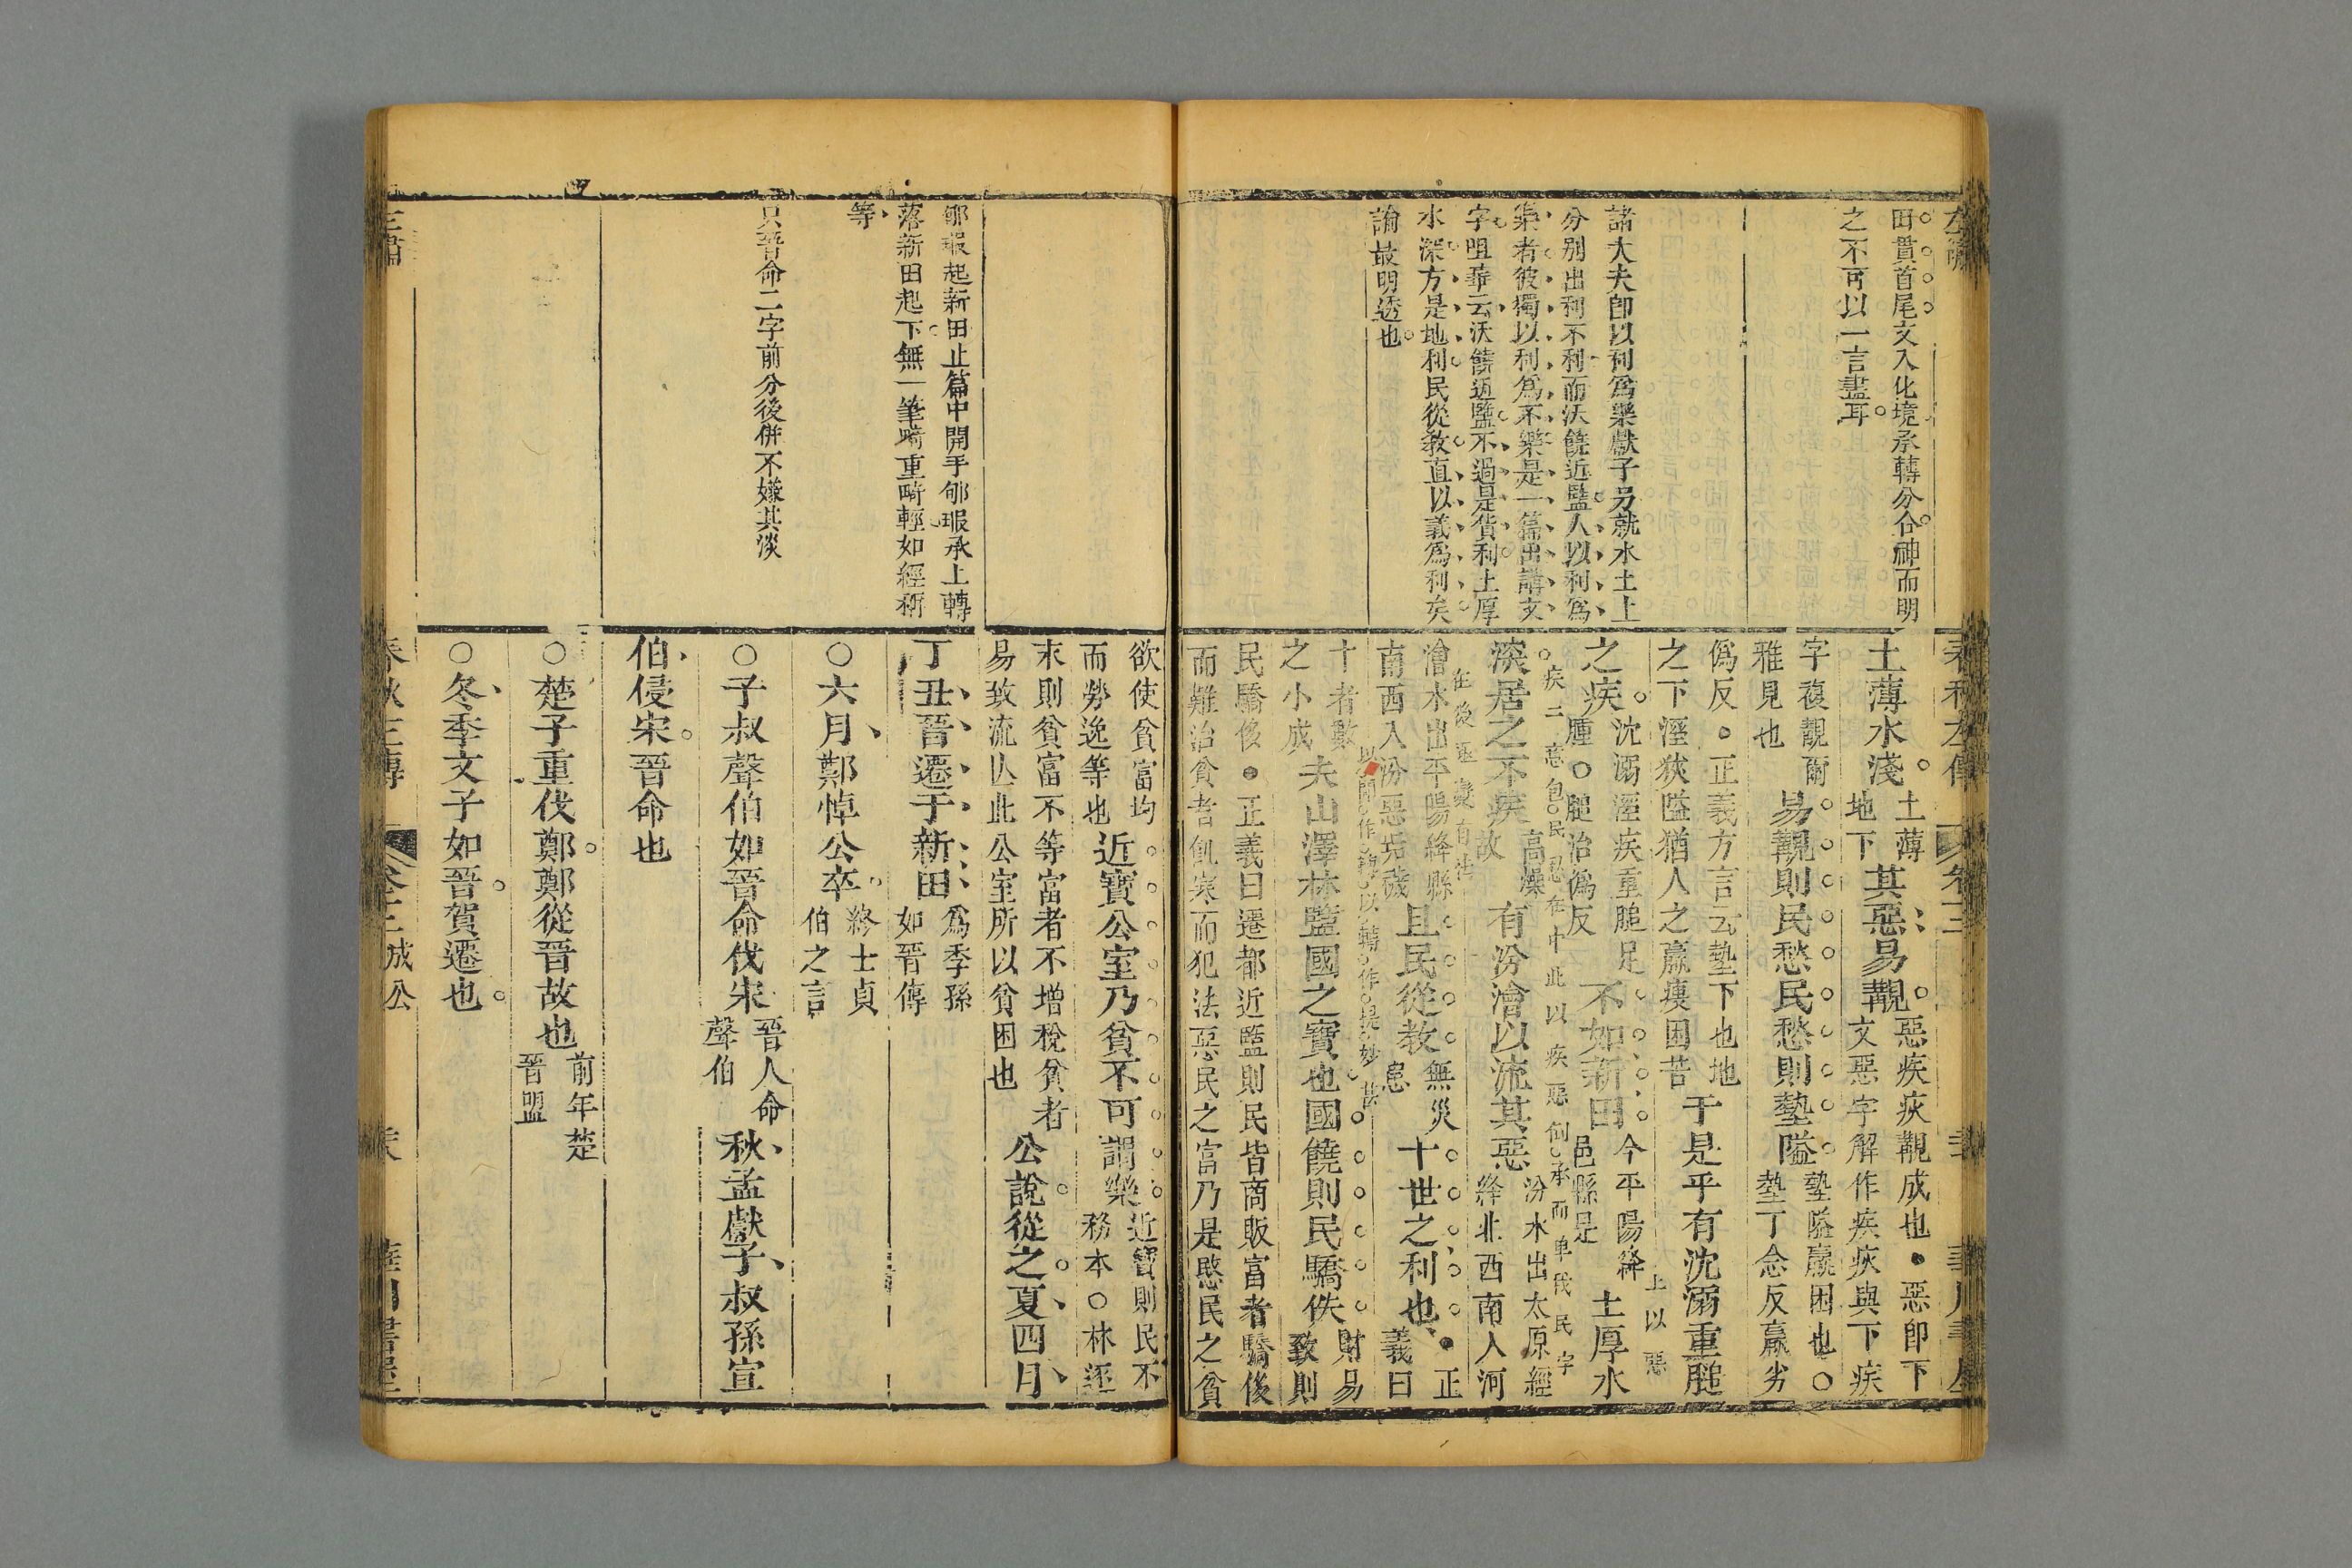 田貫首尾文入化境承轉分合神而明
之不可以一言盡耳
諸大夫卽以利爲樂獻子另就水土上
分别出利不利而沃饒近盬人以利爲
樂者彼獨以利爲不樂是一篇出講文
字咀華云沃饒近盬不過是貨利土厚
水深方是地利民從敎直以義爲利矣
論最明透也
土薄水淺
土薄
地下
其惡易覯
惡疾疢覯成也惡卽下
文惡字解作疾疢與下疾
字複覯爾
雅見也
易覯則民愁民愁則墊隘
墊隘羸困也○
墊丁念反羸劣
僞反正義方言云墊下也地
之下溼狹隘猶人之羸瘦困苦
于是乎有沈溺重膇
之疾
沈溺溼疾重膇足
腫○膇治僞反
不如新田
今平陽絳
邑縣是
土厚水
上以惡
疾二意包民愁在中此以疾惡倒承而單找民字
在後逐變有法
深居之不疾
高燥
故
有汾澮以流其惡
汾水出太原經
絳北西南入河
澮水出平陽絳縣
南西入汾惡垢穢
且民從教
無災
患
十世之利也
正
義曰
十者數
之小成
夫山澤林盬國之寶也國饒則民驕佚
財易
致則
民驕侈正義曰遷都近盬則民皆商販富者驕侈
而難治貧者飢寒而犯法惡民之富乃是愍民之貧
郇瑕起新田止篇中開手郇瑕承上轉
落新田起下無一筆畸重畸輕如經術
等
只晉命二字前分後併不嫌其淡
欲使貧富均
而勞逸等也
近寶公室乃貧不可謂樂
近寶則民不
務本○林逐
末則貧富不等富者不增稅貧者
易致流亾此公室所以貧困也
公說從之夏四月
丁丑晉遷于新田
爲季孫
如晉傳
○六月鄭悼公卒
終士貞
伯之言
○子叔聲伯如晉命伐宋
晉人命
聲伯
秋孟獻子叔孫宣
伯侵宋晉命也
○楚子重伐鄭鄭從晉故也
前年楚
晉盟
○冬季文子如晉賀遷也
成公